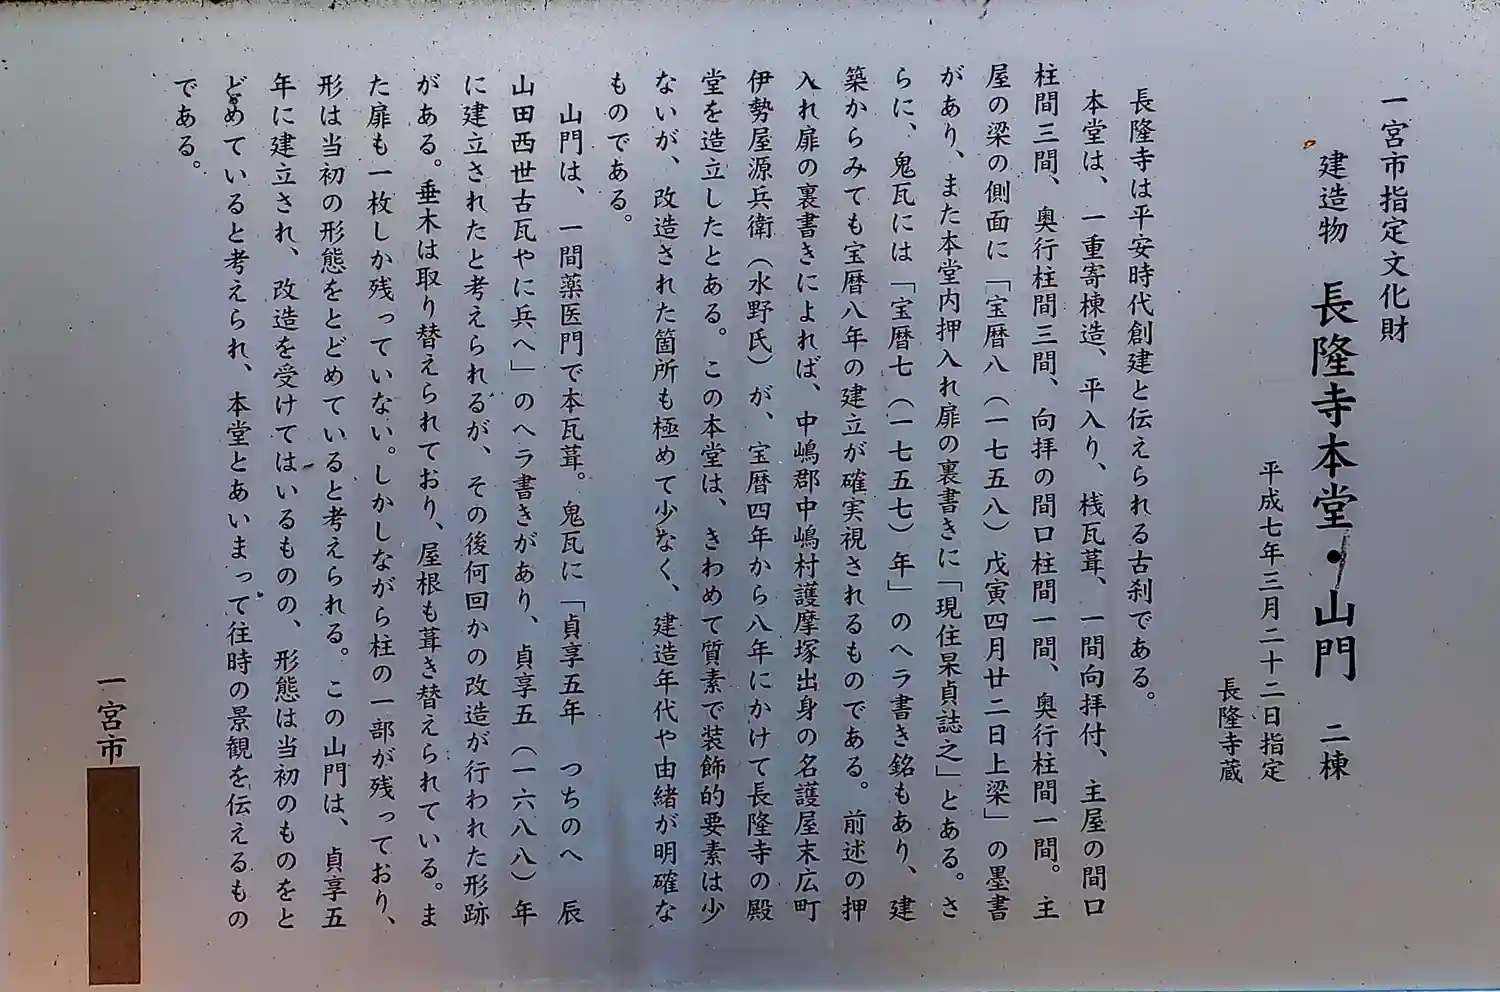 一宮市指定文化財
建造物　長隆寺本堂・山門　二棟
平成七年三月二十二日指定
長隆寺蔵
長隆寺は平安時代創建と伝えられる古刹である。
本堂は、一重寄棟造、平入り、桟瓦葺、一間向拝付、主屋の間口
柱間三間、奥行柱間三間、向拝の間口柱間一間、奥行柱間一間。主
屋の梁の側面に「宝暦八（一七五八）戊寅四月廿二日上梁」の墨書
があり、また本堂内押入れ扉の裏書きに「現住杲貞誌之」とある。さ
らに、鬼瓦には「宝暦七（一七五七）年」のヘラ書き銘もあり、建
築からみても宝暦八年の建立が確実視されるものである。前述の押
入れ扉の裏書きによれば、中嶋郡中嶋村護摩塚出身の名護屋末広町
伊勢屋源兵衛（水野氏）が、宝暦四年から八年にかけて長隆寺の殿
堂を造立したとある。この本堂は、きわめて質素で装飾的要素は少
ないが、改造された箇所も極めて少なく、建造年代や由緒が明確な
ものである。
山門は、一間薬医門で本瓦葺。鬼瓦に「貞享五年　つちのへ　辰
山田西世古瓦やに兵へ」のヘラ書きがあり、貞享五（一六八八）年
に建立されたと考えられるが、その後何回かの改造が行われた形跡
がある。垂木は取り替えられており、屋根も葺き替えられている。ま
た扉も一枚しか残っていない。しかしながら柱の一部が残っており、
形は当初の形態をとどめていると考えられる。この山門は、貞享五
年に建立され、改造を受けてはいるものの、形態は当初のものをと
どめていると考えられ、本堂とあいまって往時の景観を伝えるもの
である。
一宮市